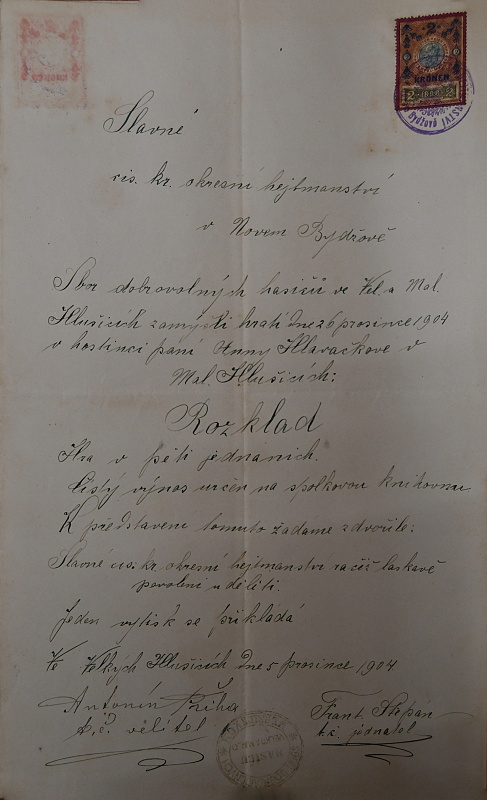 2
KRONEN
2 1898 2
Slavné
cis. kr. okresní hejtmanství
v Novém Bydžově
Sbor dobrovolných hasičů ve Vel. a Mal.
Hlušicích zamýšlí hrati dne 26 prosince 1904
v hostinci paní Anny Hlaváčkové v
Mal. Hlušicích:
Rozklad
Hra v pěti jednáních.
Čistý výnos určen na spolkovou knihovnu.
K představení tomuto žádáme zdvořile:
Slavné cis. kr. okresní hejtmanství račiž laskavě
povolení uděliti.
Jeden výtisk se přikládá
Ve Velkých Hlušicích dne 5 prosince 1904.
Antonín Říha
t.č. velitel
Frant. Štěpán
t.č. jednatel